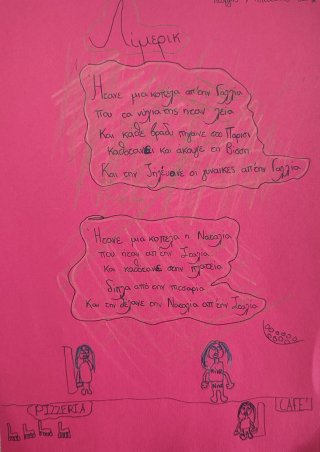 Λίμερικ
Ήτανε μια κοπέλα απ'την Γαλλία
που τα νύχια της ήταν λεία
Και κάθε βράδυ πήγαινε στο Παρίσι
καθότανε και άκουγε τη βρύση
Και την ζηλεύανε οι γυναίκες απ'την Γαλλία
Ήτανε μια κοπέλα η Ναταλία
που ήταν απ'την Ιταλία
και καθότανε στην πλατεία
δίπλα από την πιτσαρία
Και την δείχανε την Ναταλία απ'την Ιταλία
PIZZERIA
CAFE